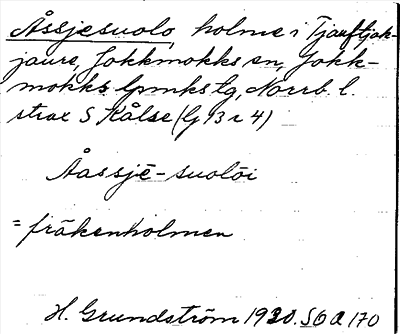 Åssjesuolo, holme i Tjaufijok-
jaure, Jokkmokks sn, Jokk-
mokks lpmks tg, Norrb. l.
strax S Kålse (G 13 r 4)
Åassjē-suolōi
= fräkenholmen
H. Grundström 1930. S6a 170